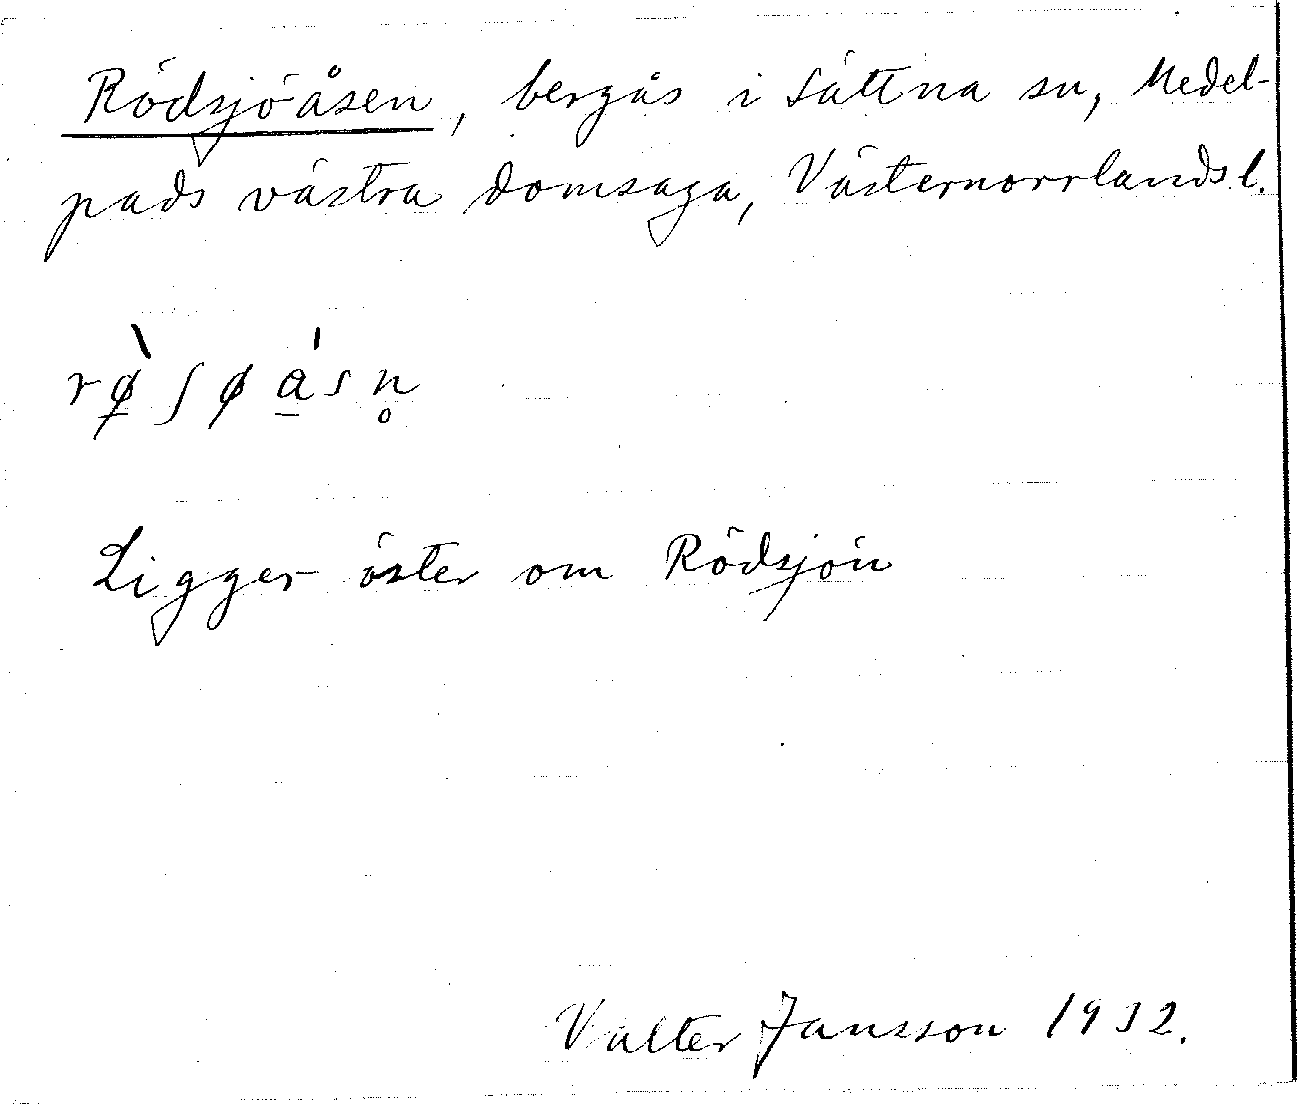 Rödsjöåsen, bergås i Sättna sn, Medel-
pads västra domsaga, Västernorrlands l.
rø̠̀ʃøa̠̍sn̥
Ligger öster om Rödsjön
Valter Jansson 1932.